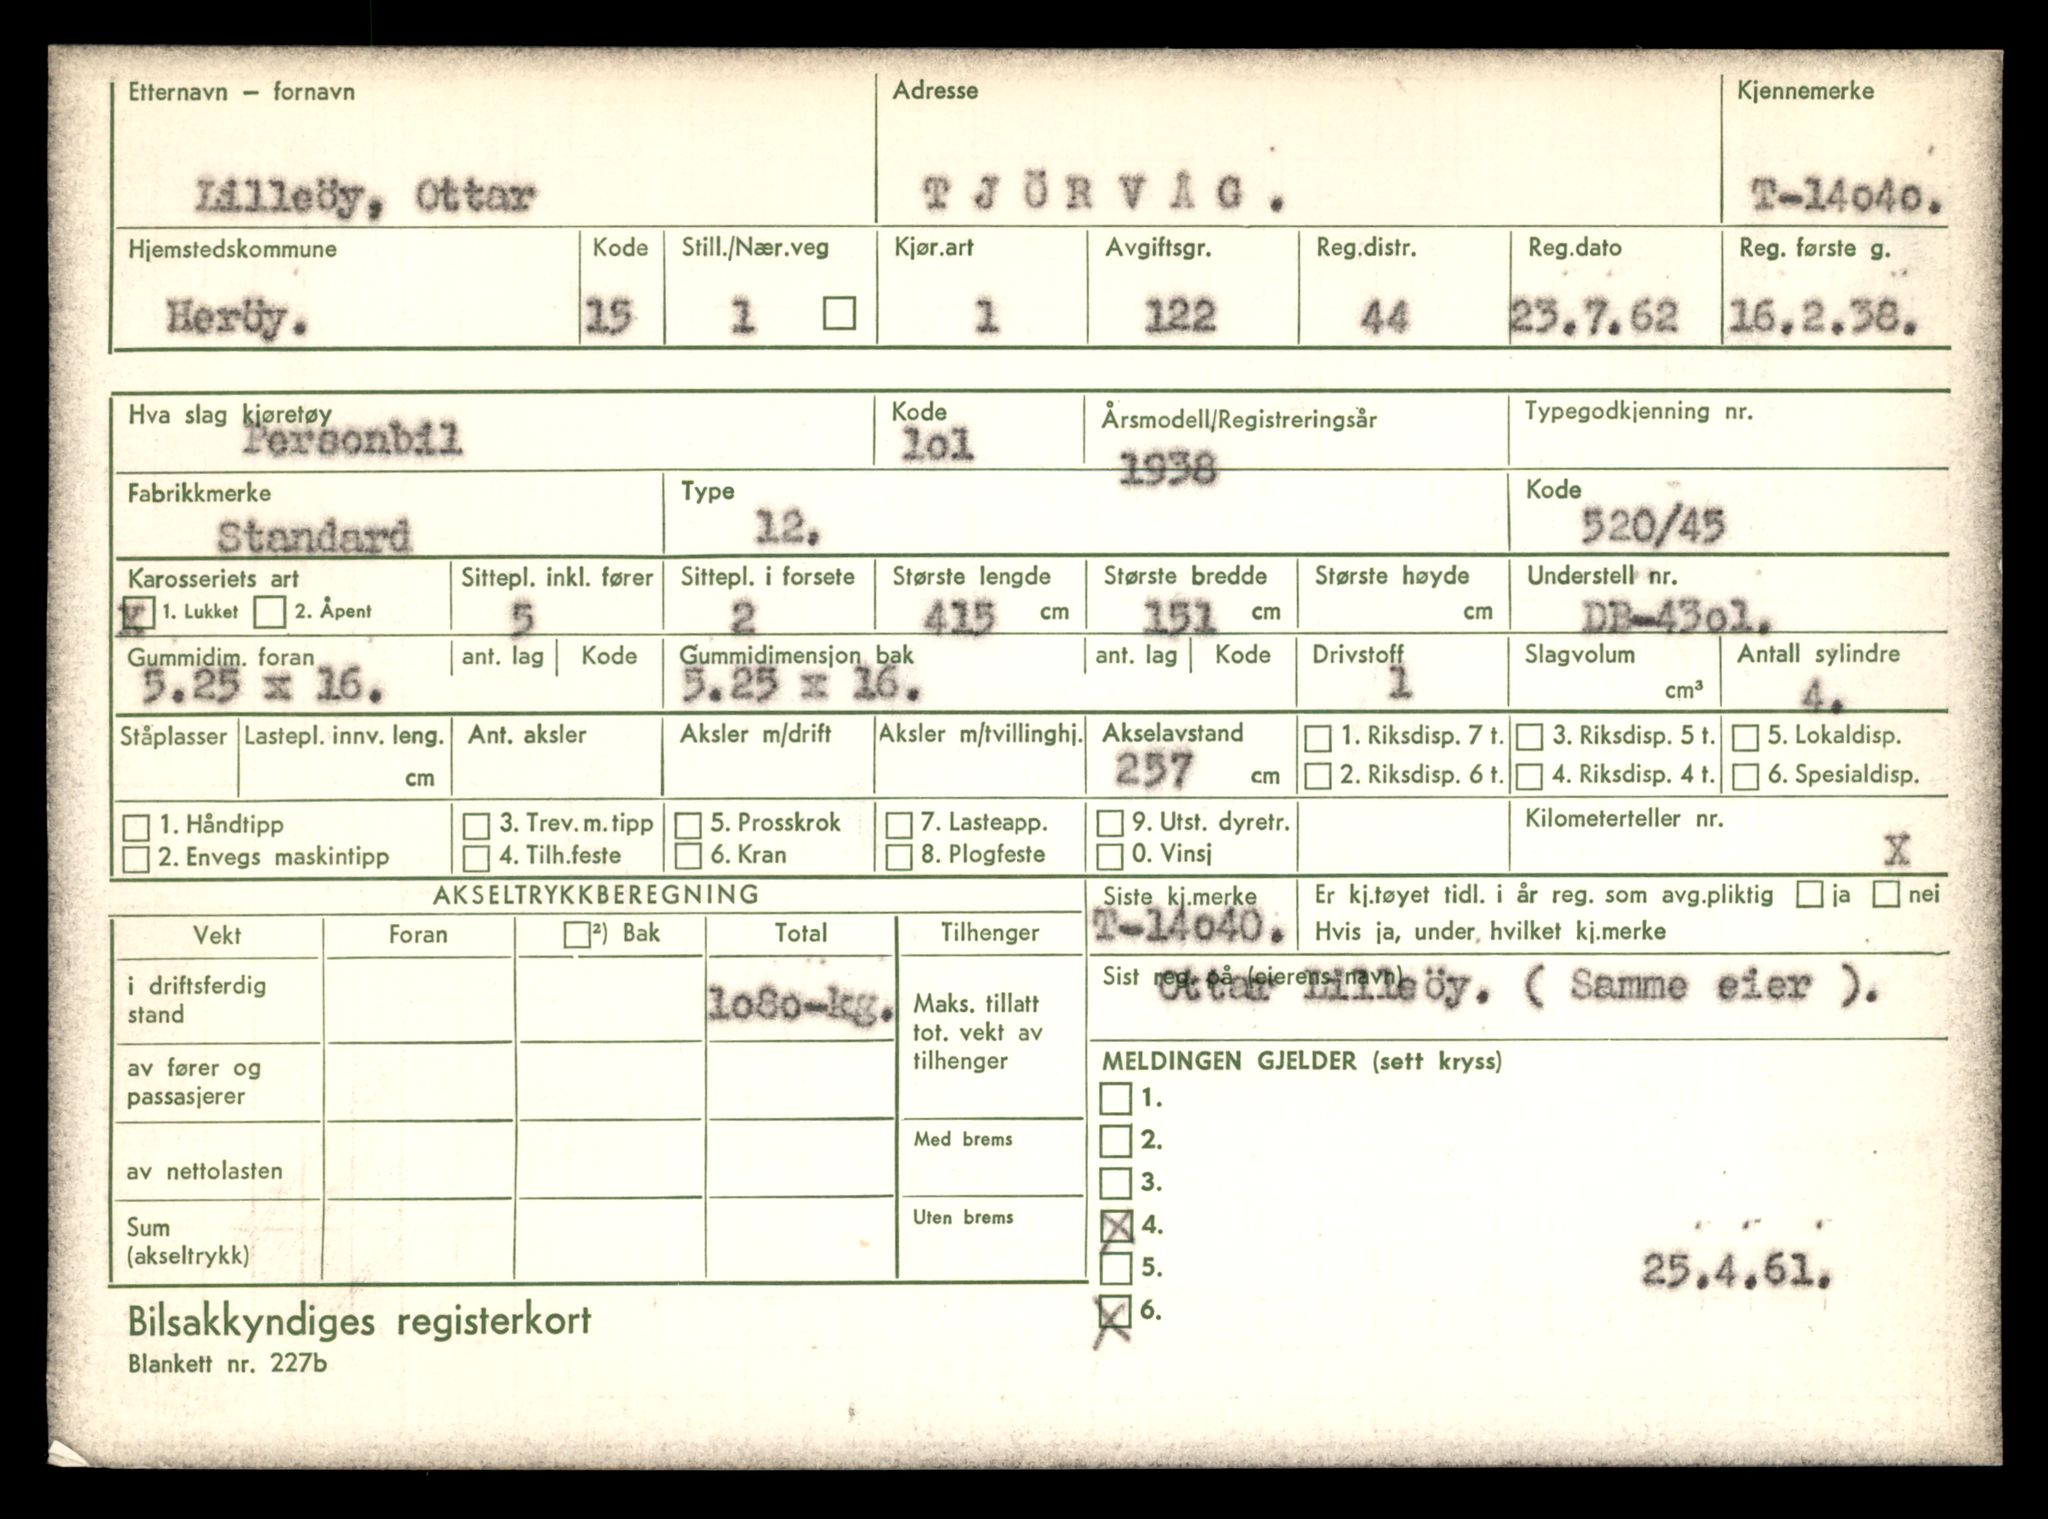 Etternavn – fornavn Adresse Kjennemerke
Lilleöy, Ottar T J Ö R V Å G . T-14o4o.
Hjemstedskommune Kode Still./Nær.veg Kjør.art Avgiftsgr. Reg.distr. Reg.dato Reg. første g.
Heröy. 15 1 1 122 44 23.7.62 16.2.38.
Hva slag kjøretøy Kode Årsmodell/Registreringsår Typegodkjenning nr.
Personbil 1o1 1938
Fabrikkmerke Type Kode
Standard 12. 520/45
Karosseriets art Sittepl. inkl. fører Sittepl. i forsete Største lengde Største bredde Største høyde Understell nr.
X 1. Lukket 2. Åpent 5 2 415 cm 151 cm cm DB-43o1.
Gummidim. foran ant. lag Kode Gummidimensjon bak ant. lag Kode Drivstoff Slagvolum Antall sylindre
5.25 x 16. 5.25 x 16. 1 cm³ 4.
Ståplasser Lastepl. innv. leng. Ant. aksler Aksler m/drift Aksler m/tvillinghj. Akselavstand 1. Riksdisp. 7 t. 3. Riksdisp. 5 t. 5. Lokaldisp.
cm 257 cm 2. Riksdisp. 6 t. 4. Riksdisp. 4 t. 6. Spesialdisp.
1. Håndtipp 3. Trev. m. tipp 5. Prosskrok 7. Lasteapp. 9. Utst. dyretr. Kilometerteller nr.
2. Envegs maskintipp 4. Tilh.feste 6. Kran 8. Plogfeste 0. Vinsj X
AKSELTRYKKBEREGNING Siste kj.merke Er kj.tøyet tidl. i år reg. som avg.pliktig ja nei
T-14o40. Hvis ja, under hvilket kj.merke
Vekt Foran ²) Bak Total Tilhenger
Sist reg. på (eierens navn)
Ottar Lilleöy. ( Samme eier ).
i driftsferdig
stand 1o8o-kg.
Maks. tillatt
tot. vekt av
tilhenger
av fører og
passasjerer
Med brems
av nettolasten
Uten brems
Sum
(akseltrykk)
MELDINGEN GJELDER (sett kryss)
1.
2.
3.
X 4.
5. 25.4.61.
X 6.
Bilsakkyndiges registerkort
Blankett nr. 227b